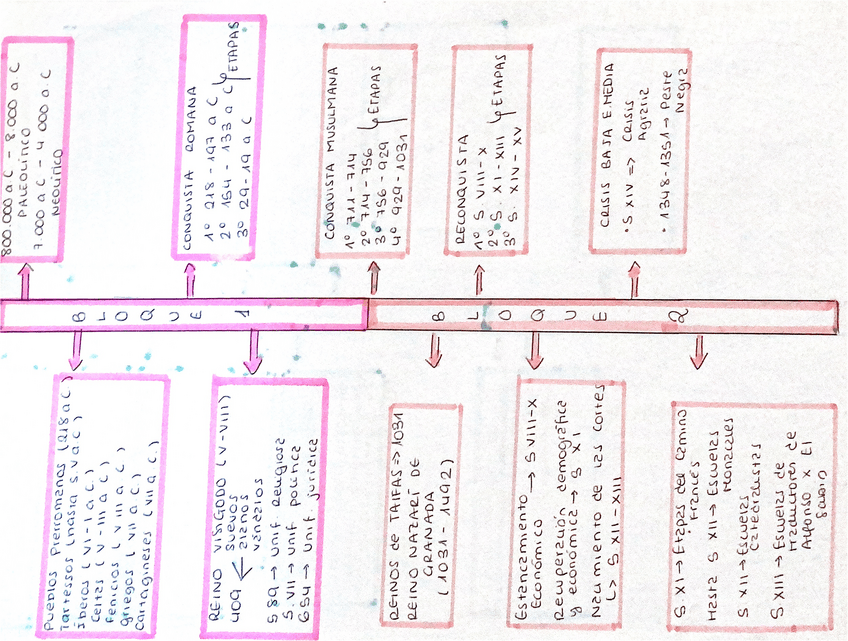 800.000 a C - 8.000 a.C
PALEOLÍTICO
7.000 a C - 4 000 a.C
NEOLÍTICO
CONQUISTA ROMANA
1º 218 - 197 a C
2º 154 - 133 a C ETAPAS
3º 29 - 19 a C
CONQUISTA MUSULMANA
1º 711 - 714
2º 714 - 756 ETAPAS
3º 756 - 929
4º 929 - 1031
RECONQUISTA
1º S VIII - X
2º S. XI - XIII ETAPAS
3º S. XIV - XV
CRISIS BAJA E.MEDIA
• S XIV => CRISIS
Agraria
• 1348 - 1351 → Peste
Negra
BLOQUE 1
BLOQUE 2
Pueblos Prerromanos (218 a C)
Tartessos (hasta S V a C)
Íberos (VI - I a C)
Celtas (V - III a C)
Fenicios (VIII a C)
Griegos (VII a C)
Cartagineses (VII a C.)
REINO VISIGODO (V - VIII)
409 suevos
alanos
vándalos
589 → Unif. Religiosa
S. VII → Unif. política
654 → Unif. jurídica
REINOS de TAIFAS => 1031
REINO NAZARÍ DE
GRANADA
(1031 - 1492)
Estancamiento
Económico → S VIII - X
Recuperación demográfica
y económica → S XI
Nacimiento de las cortes
↳ S XII - XIII
S XI → Etapas del camino
Francés
Hasta S XII → Escuelas
Monacales
S XII → Escuelas
Catedralistas
S XIII → Escuelas de
traductores de
Alfonso X El
Sabio